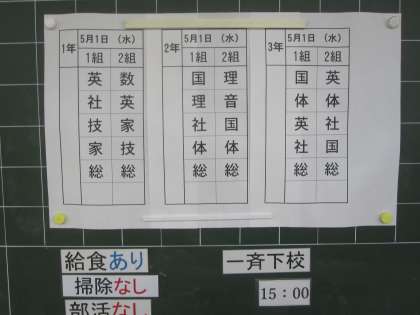 1年 5月1日 (水)
1組 2組
英 数
社 英
技 家
家 技
総 総
2年 5月1日 (水)
1組 2組
国 理
理 音
社 国
体 体
総 総
3年 5月1日 (水)
1組 2組
国 英
体 体
英 社
社 国
総 総
給食あり
掃除なし
部活なし
一斉下校
15:00